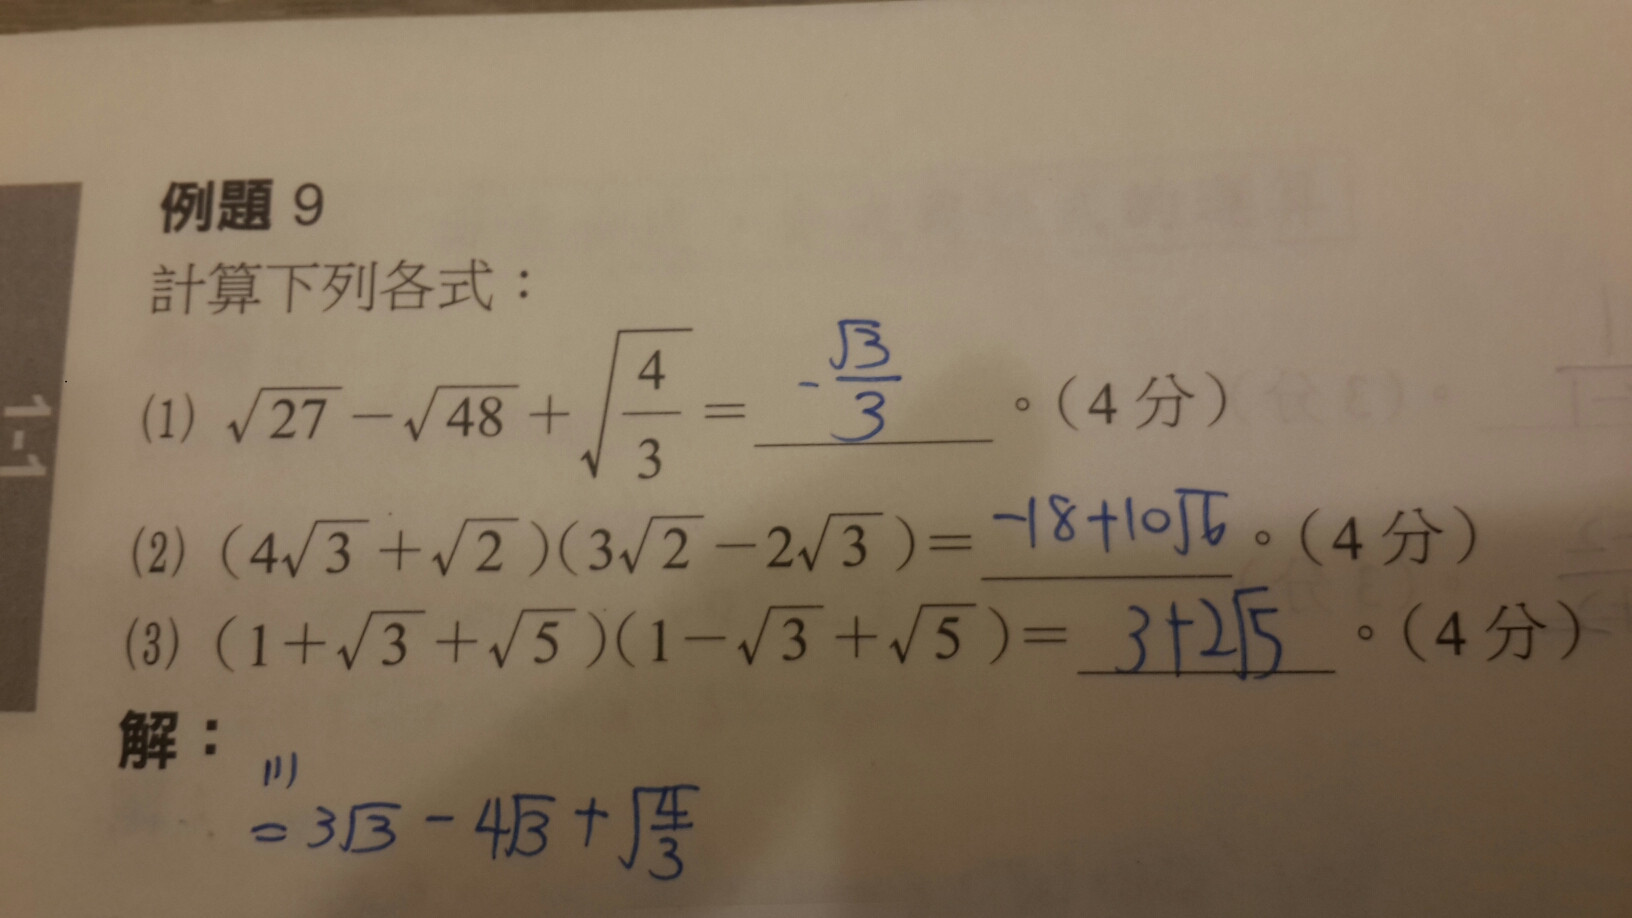 例題 9
計算下列各式：
(1) √27 − √48 + √(4/3) = -√3/3 。(4 分)
(2) (4√3 + √2)(3√2 − 2√3) = -18+10√6 。(4 分)
(3) (1+√3+√5)(1−√3+√5) = 3+2√5 。(4 分)
解：
(1)
= 3√3 - 4√3 + √(4/3)
1-1